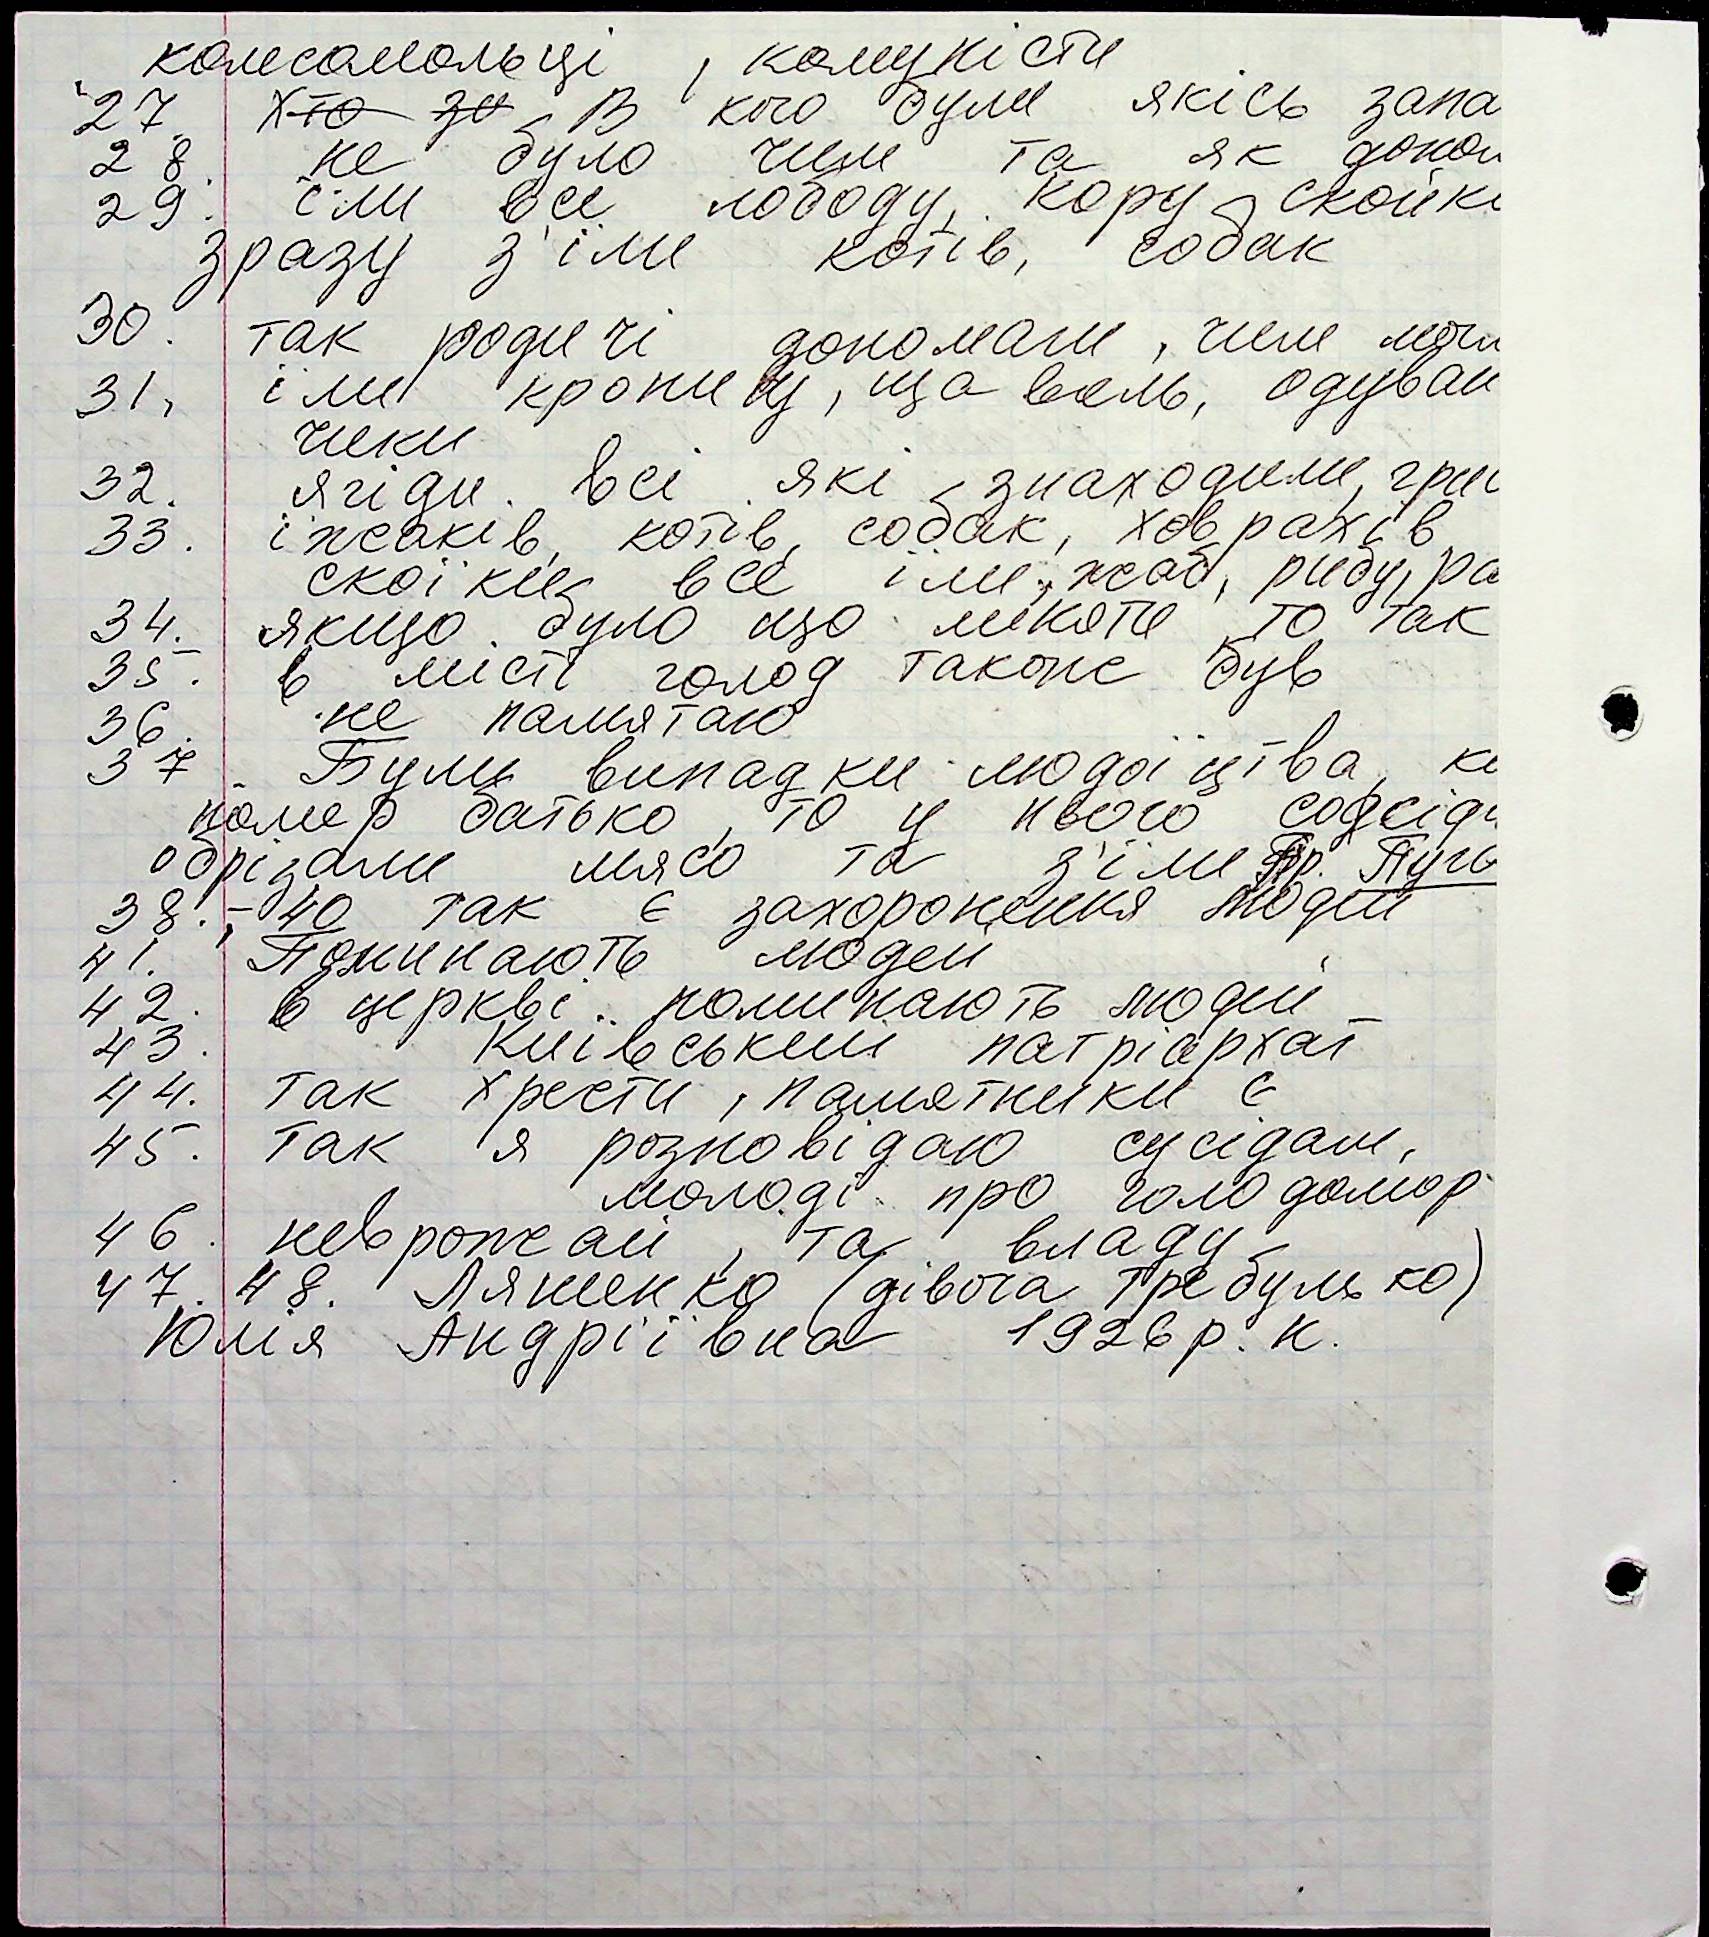 комсомольці, комуністи
27. ~~хто зн~~ В кого були якісь запа
28. не було чим та як допом
29. їли все лободу, кору, скойки
зразу з'їли котів, собак
30. так родичі допомагли, чим могли
31. їли кропиву, щавель, одуван
чики
32. ягіди всі які знаходили, гри
33. їжаків, котів, собак, ховрахів
скоїки все їли, жаб, рибу, ра
34. якщо було що міняти то так
35. в місті голод також був
36. не памятаю
37. Були випадки людоїцтва, ко
помер батько, то у нього сосіди
обрізали мясо та з'їли Пр. Пугь
38.-40 так є захоронення людей
41. Поминають людей
42. в церкві поминають людей
43. Київський патріархат
44. так хрести, памятники є
45. так я розповідаю сусідам,
молоді про голодомор
46. неврожай, та владу
47. 48. Ляшенко (дівоча Требулько)
Юлія Андріївна 1926 р. н.